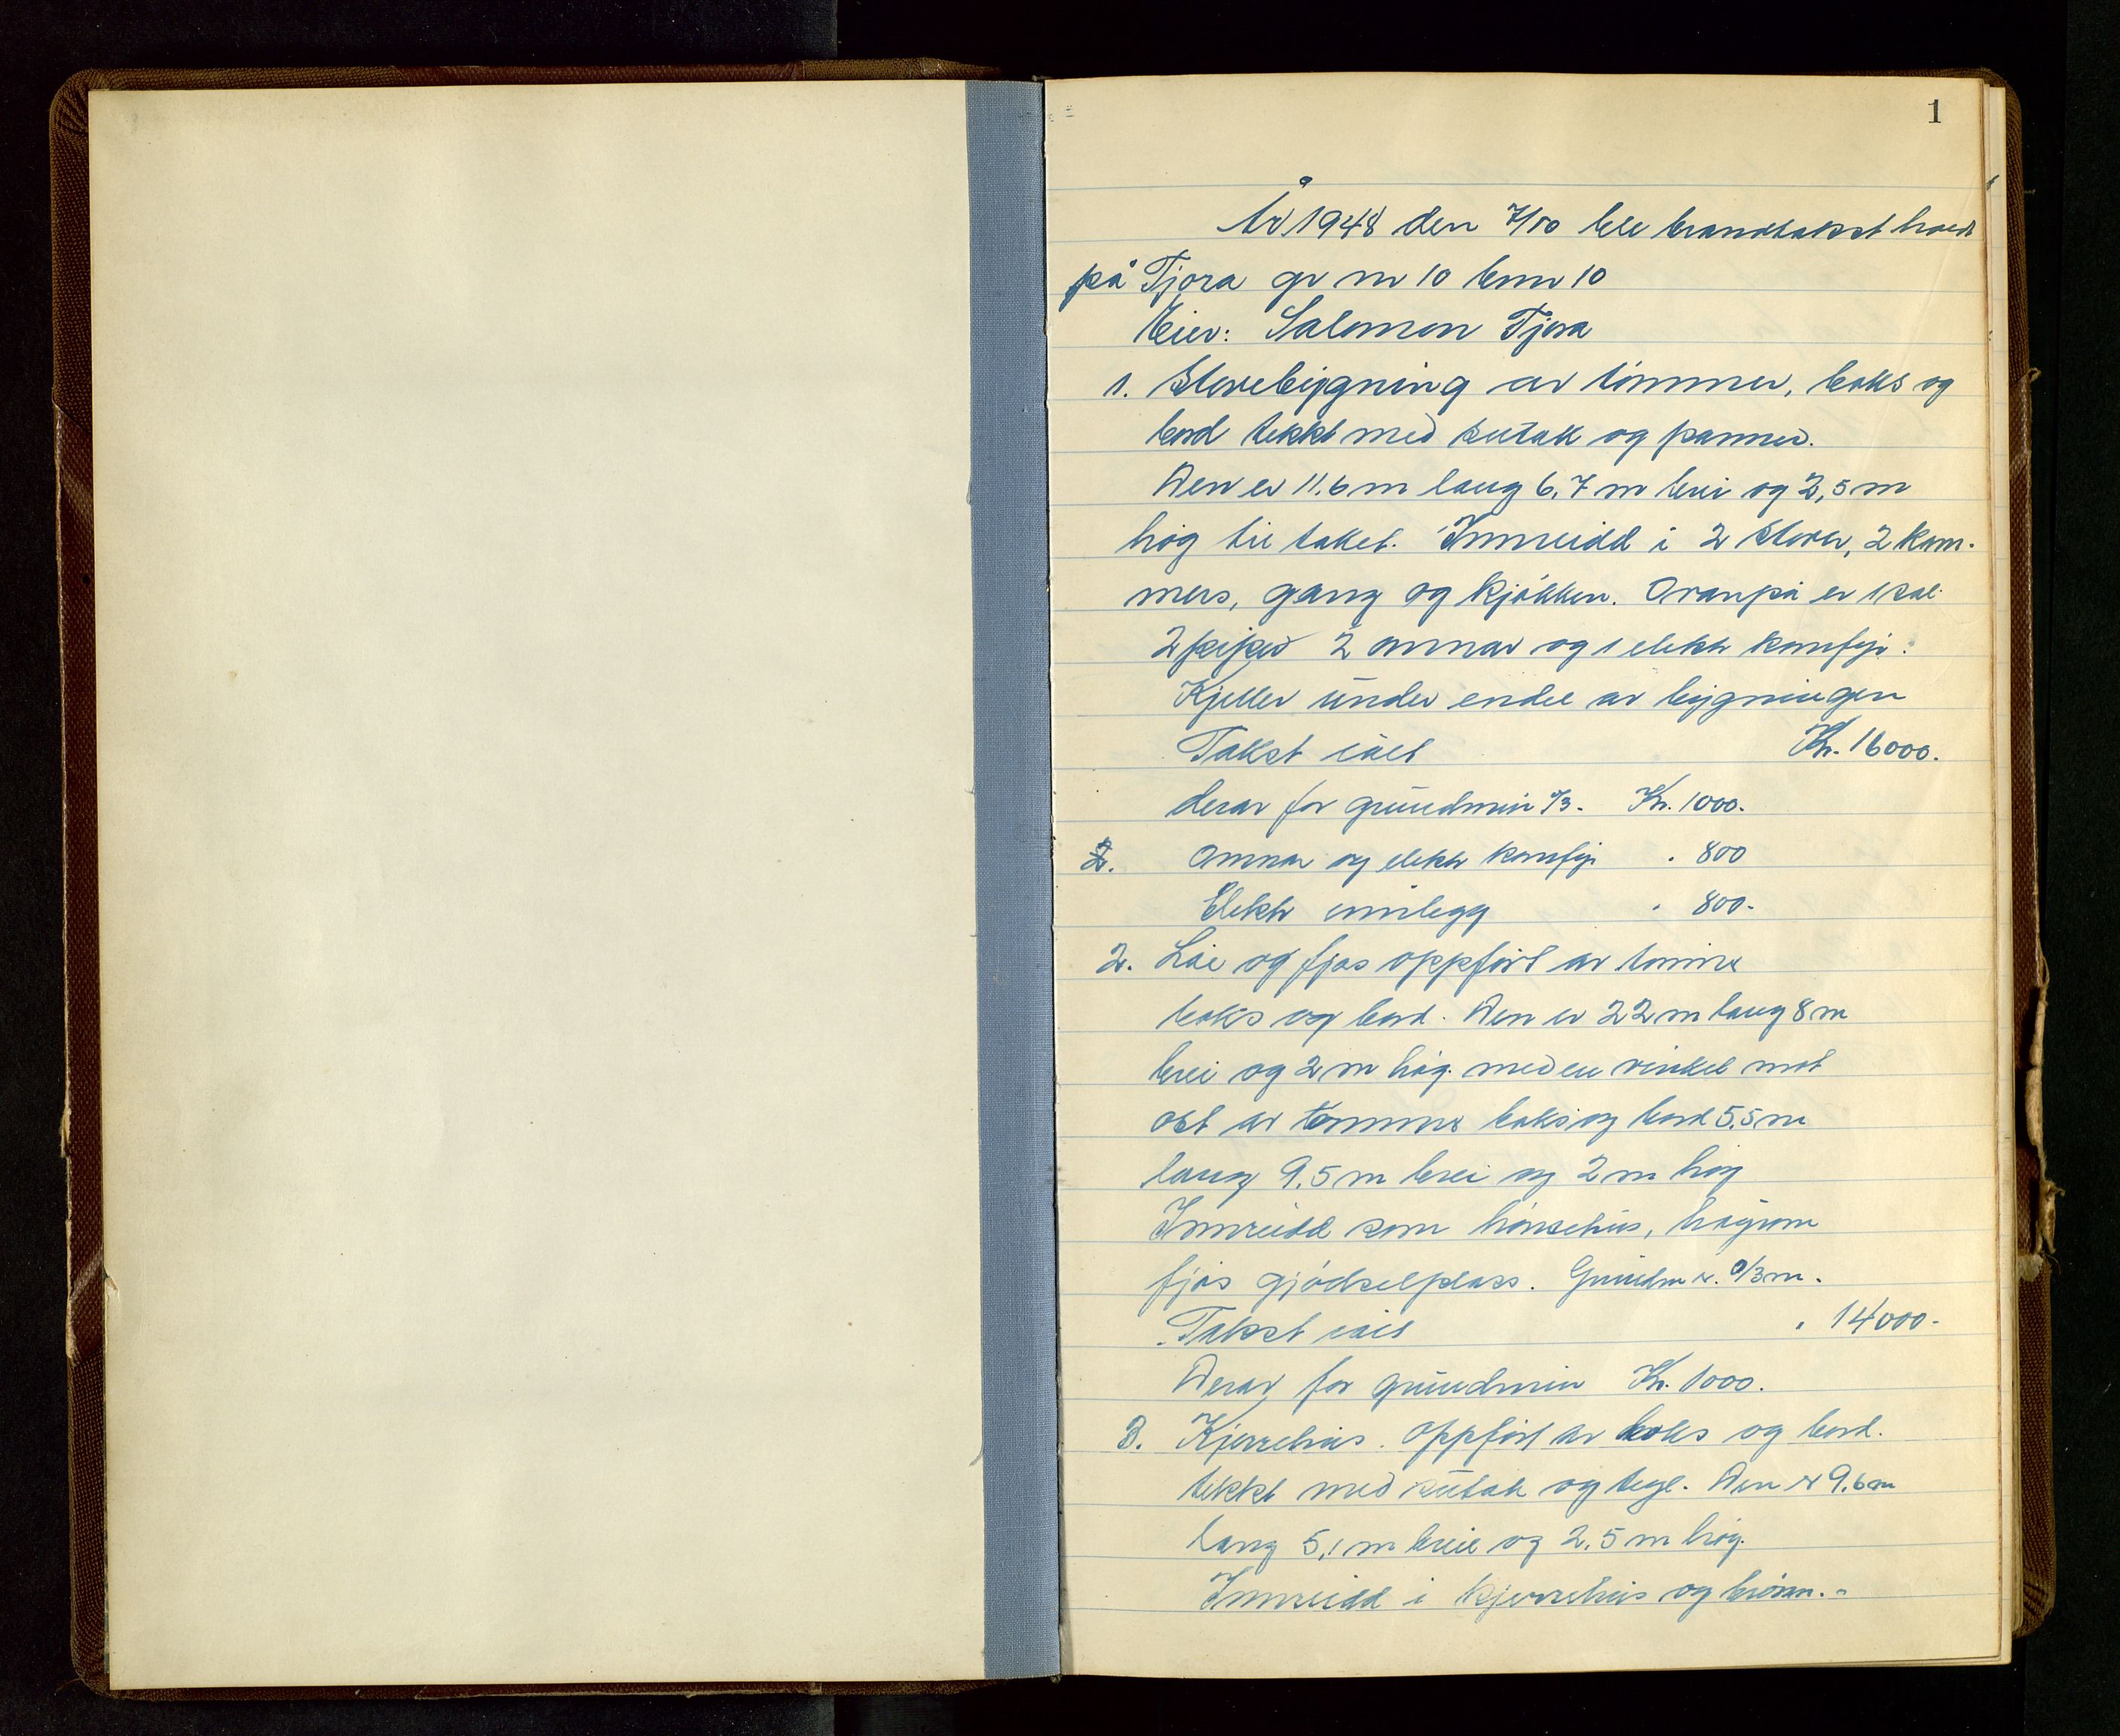 1
År 1948 den 7/10 ble branntakst havdt
på Tjora gr nr 10 bnr 10
Eier: Salomon Tjora
1. Stovebygning av tømmer, boks og
bord tekkt med sutak og panner.
Den er 11.6 m lang 6,7 m brei og 2,5 m
høg til taket. Innreidd i 2 stover, 2 kam-
mers, gang og kjøkken. Ovanpå er 1 sal.
2 piper 2 omnar og 1 elektr komfyr.
Kjeller under endel av bygningen
Takst ialt Kr. 16000.
derav for grundmur 0/3. Kr. 1000.
2. Omnar og elektr komfyr " 800
Elektr innlegg " 800-
2. Løe og fjøs oppført av tømmer
boks og bord. Den er 22 m lang 8 m
brei og 2 m høg. med en vinkel mot
ost av tømmer boks og bord 5,5 m
lang 9,5 m brei og 2 m høg
Innreidd som hønsehus, høyrom
fjøs gjødselplass. Grundm er. 0/3 m.
Takst ialt " 14000-
Derav for grundmur Kr. 1000.
3. Kjerrehus. Oppført av boks og bord.
tekkt med sutak og tegl. Den er 9.6 m
lang 5,1 m brei og 2,5 m høg.
Innreidd i kjerrehus og brønn.-